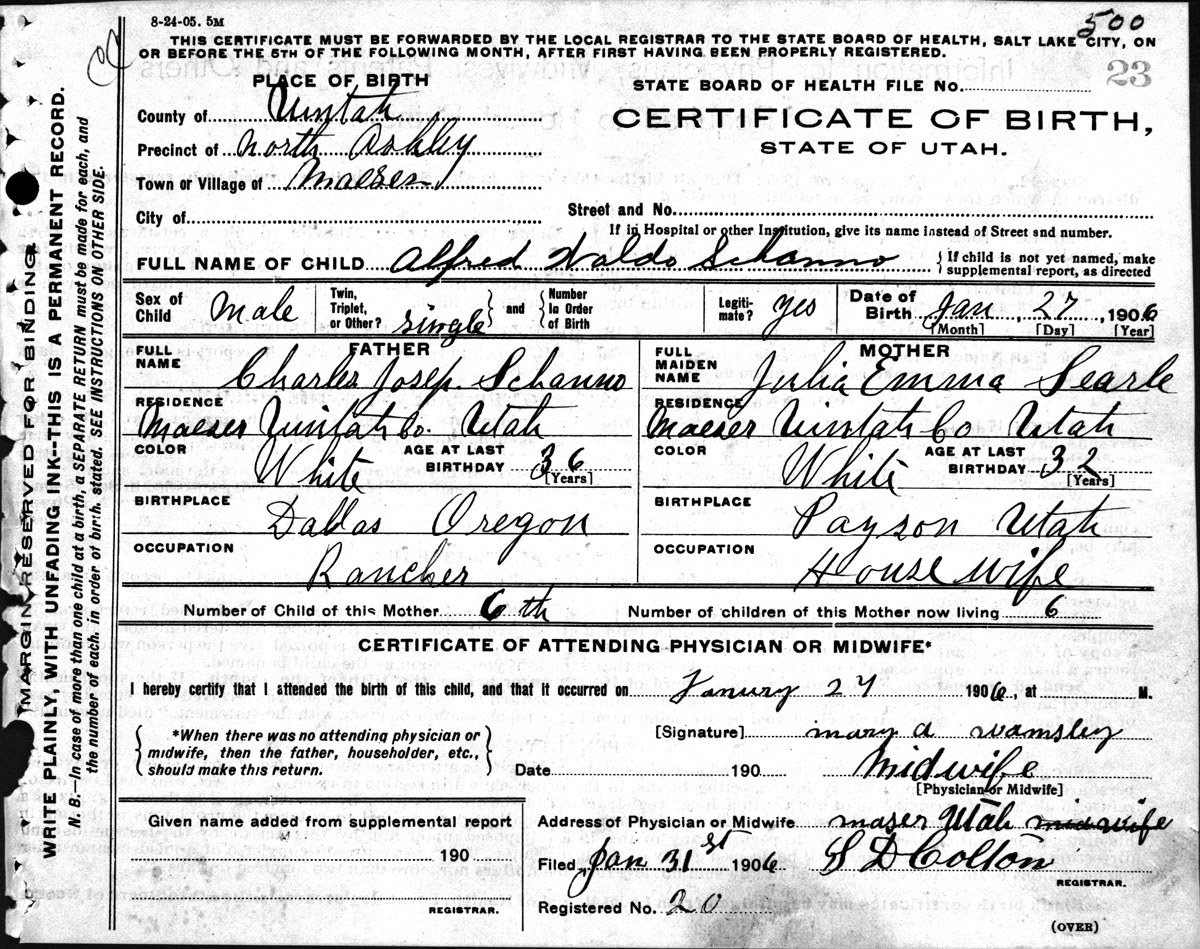 8-24-05. 5M
500
THIS CERTIFICATE MUST BE FORWARDED BY THE LOCAL REGISTRAR TO THE STATE BOARD OF HEALTH, SALT LAKE CITY, ON
OR BEFORE THE 5TH OF THE FOLLOWING MONTH, AFTER FIRST HAVING BEEN PROPERLY REGISTERED.
23
PLACE OF BIRTH
STATE BOARD OF HEALTH FILE No.
County of Uintah
CERTIFICATE OF BIRTH,
Precinct of North Ashley
STATE OF UTAH.
Town or Village of Maeser
City of
Street and No.
If in Hospital or other Institution, give its name instead of Street and number.
FULL NAME OF CHILD Alfred Waldo Schanno { If child is not yet named, make supplemental report, as directed
Sex of Child Male Twin, Triplet, or Other? single } and { Number In Order of Birth Legiti- mate? Yes Date of Birth Jan 27, 1906
[Month] [Day] [Year]
FATHER
MOTHER
FULL NAME Charles Josep. Schanno
FULL MAIDEN NAME Julia Emma Searle
RESIDENCE Maeser Uintah Co. Utah
RESIDENCE Maeser Uintah Co Utah
COLOR White AGE AT LAST BIRTHDAY 36 [Years]
COLOR White AGE AT LAST BIRTHDAY 32 [Years]
BIRTHPLACE Dallas Oregon
BIRTHPLACE Payson Utah
OCCUPATION Rancher
OCCUPATION House wife
Number of Child of this Mother 6th
Number of children of this Mother now living 6
CERTIFICATE OF ATTENDING PHYSICIAN OR MIDWIFE*
I hereby certify that I attended the birth of this child, and that it occurred on Janury 27 1906, at M.
{ *When there was no attending physician or
midwife, then the father, householder, etc.,
should make this return. }
[Signature] mary a wamsley
Date 190 Midwife
[Physician or Midwife]
Given name added from supplemental report
190
REGISTRAR.
Address of Physician or Midwife maser Utah midwife
Filed Jan 31st 1906 S D Colton
REGISTRAR.
Registered No. 20
(OVER)
MARGIN RESERVED FOR BINDING.
WRITE PLAINLY, WITH UNFADING INK--THIS IS A PERMANENT RECORD.
N. B.—In case of more than one child at a birth, a SEPARATE RETURN must be made for each, and
the number of each, in order of birth, stated. SEE INSTRUCTIONS ON OTHER SIDE.